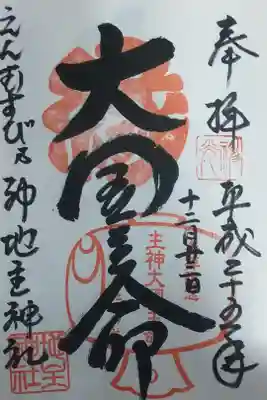 奉拝
平成二十五年
十二月廿二日
大国主命
えんむすびの神地主神社
主神大国主命
地主神社